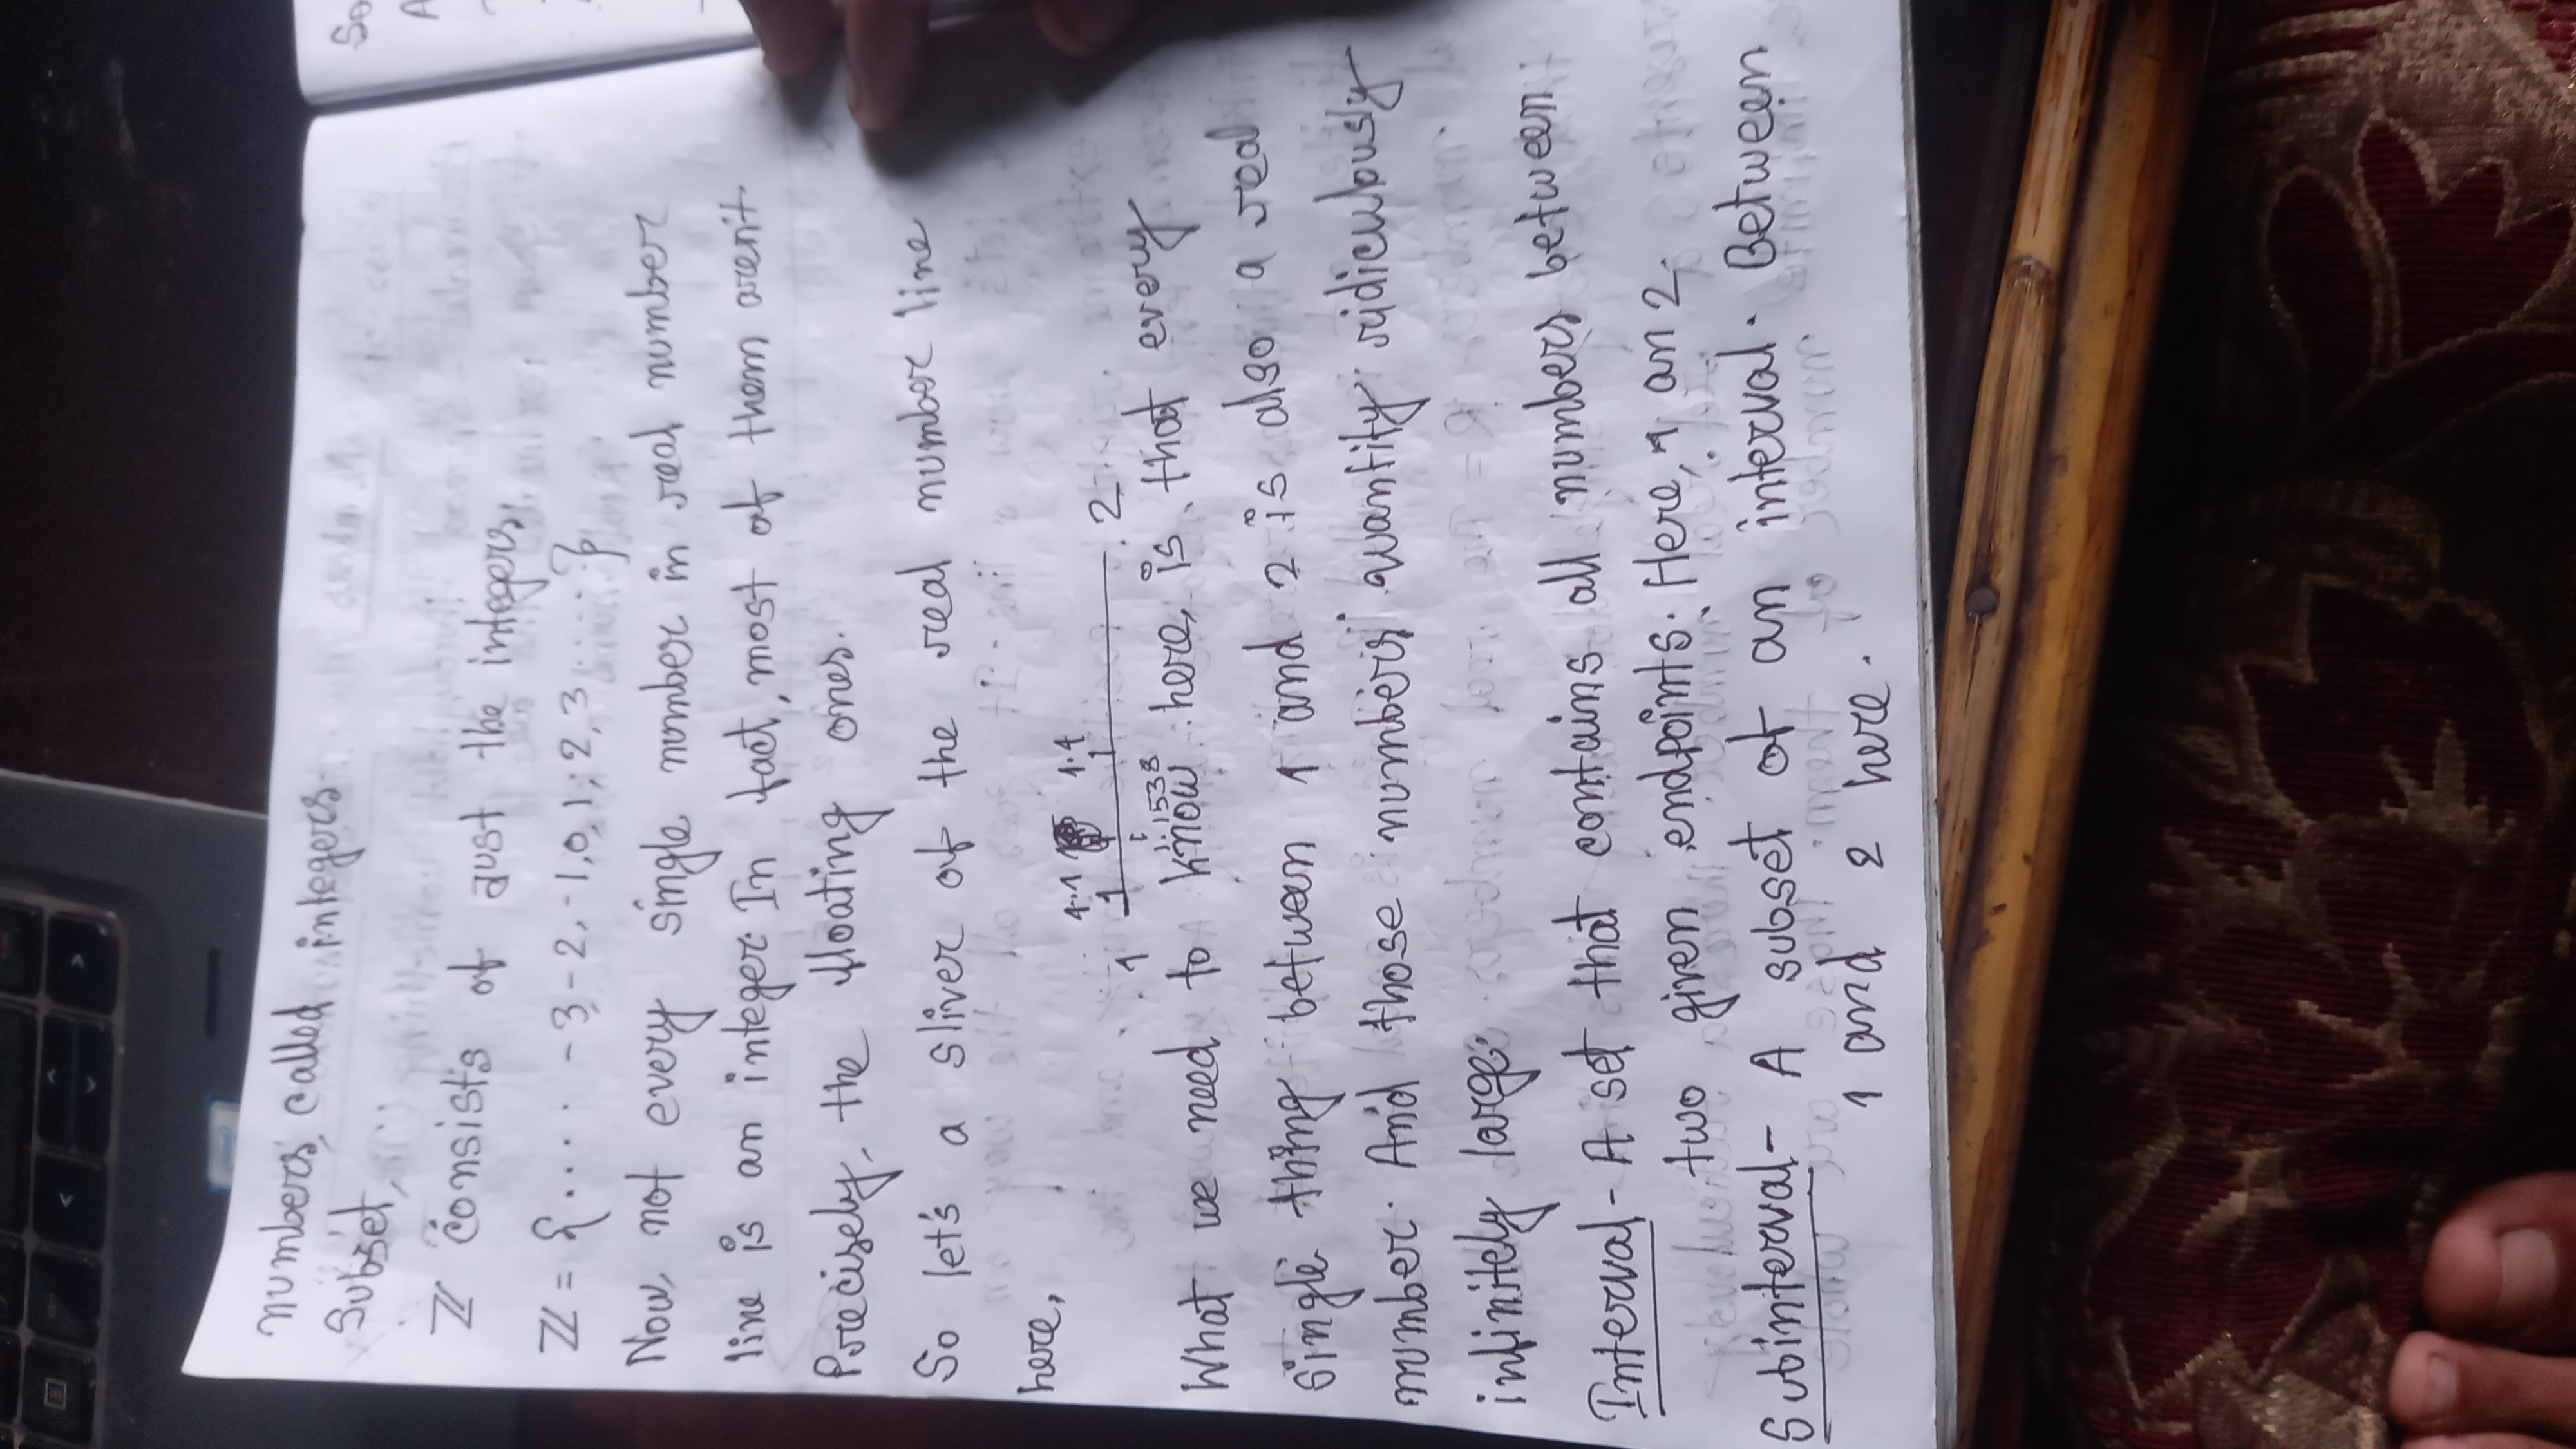 numbers, called integers.
Subset,
ℤ consists of just the integers.
ℤ = {.... -3,-2,-1,0,1,2,3.....}
Now, not every single number in real number
line is an integer. In fact, most of them aren't.
Precisely, the floating ones.
So let's a sliver of the real number line
here,
1.1 1.4
1 2
1.1538
What we need to know here, is that every
single thing between 1 and 2 is also a real
number. And those numbers' quantity ridiculously
infinitely large.
Interval - A set that contains all numbers between
two given endpoints. Here, 1 an 2.
Subinterval - A subset of an interval. Between
1 and 2 here.
So
A